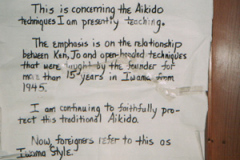 This is concerning the Aikido
techniques I am presently teaching.
The emphasis is on the relationship
between Ken, Jo and open-handed techniques
that were taught by the founder for
more than 15 years in Iwama from
1945.
I am continuing to faithfully pro-
tect this traditional Aikido.
Now, foreigners refer to this as
"Iwama Style".